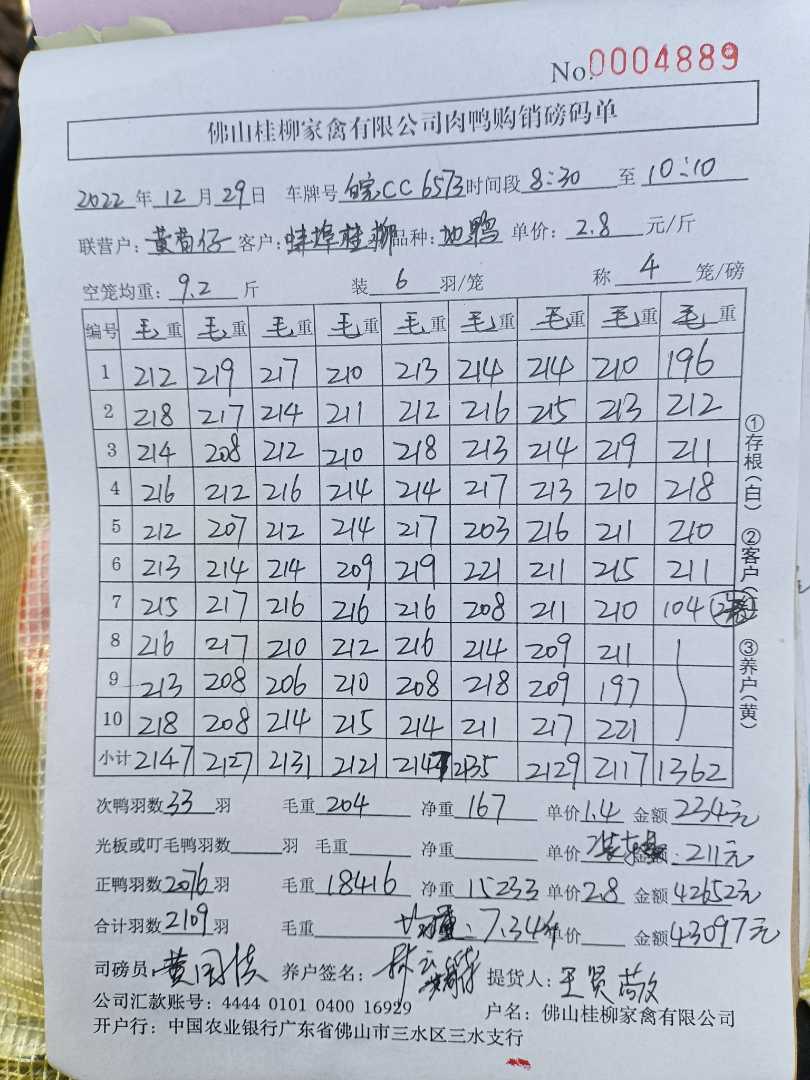 No.0004889
佛山桂柳家禽有限公司肉鸭购销磅码单
2022年12月29日 车牌号皖CC6573时间段8:30至10:10
联营户:黄苟仔 客户:蚌埠桂柳 品种:地鸭 单价:2.8元/斤
空笼均重:9.2斤 装6羽/笼 称4笼/磅
编号 毛重 毛重 毛重 毛重 毛重 毛重 毛重 毛重 毛重
1 212 219 217 210 213 214 214 210 196
2 218 217 214 211 212 216 215 213 212
3 214 208 212 210 218 213 214 219 211
4 216 212 216 214 214 217 213 210 218
5 212 207 212 214 217 203 216 211 210
6 213 214 214 209 219 221 211 215 211
7 215 217 216 216 216 208 211 210 104
8 216 217 210 212 216 214 209 211
9 213 208 206 210 208 218 209 197
10 218 208 214 215 214 211 217 221
小计 2147 2127 2131 2121 2147 2135 2129 2117 1362
次鸭羽数33羽 毛重204 净重167 单价1.4 金额234元
光板或叮毛鸭羽数 羽 毛重 净重 单价 金额 211元
正鸭羽数2076羽 毛重18416 净重15233 单价2.8 金额42652元
合计羽数2109羽 毛重 均重:7.34斤 单价 金额43097元
司磅员: 养户签名: 提货人:王贤
公司汇款账号:4444 0101 0400 16929 户名:佛山桂柳家禽有限公司
开户行:中国农业银行广东省佛山市三水区三水支行
①存根(白) ②客户( ③养户(黄)